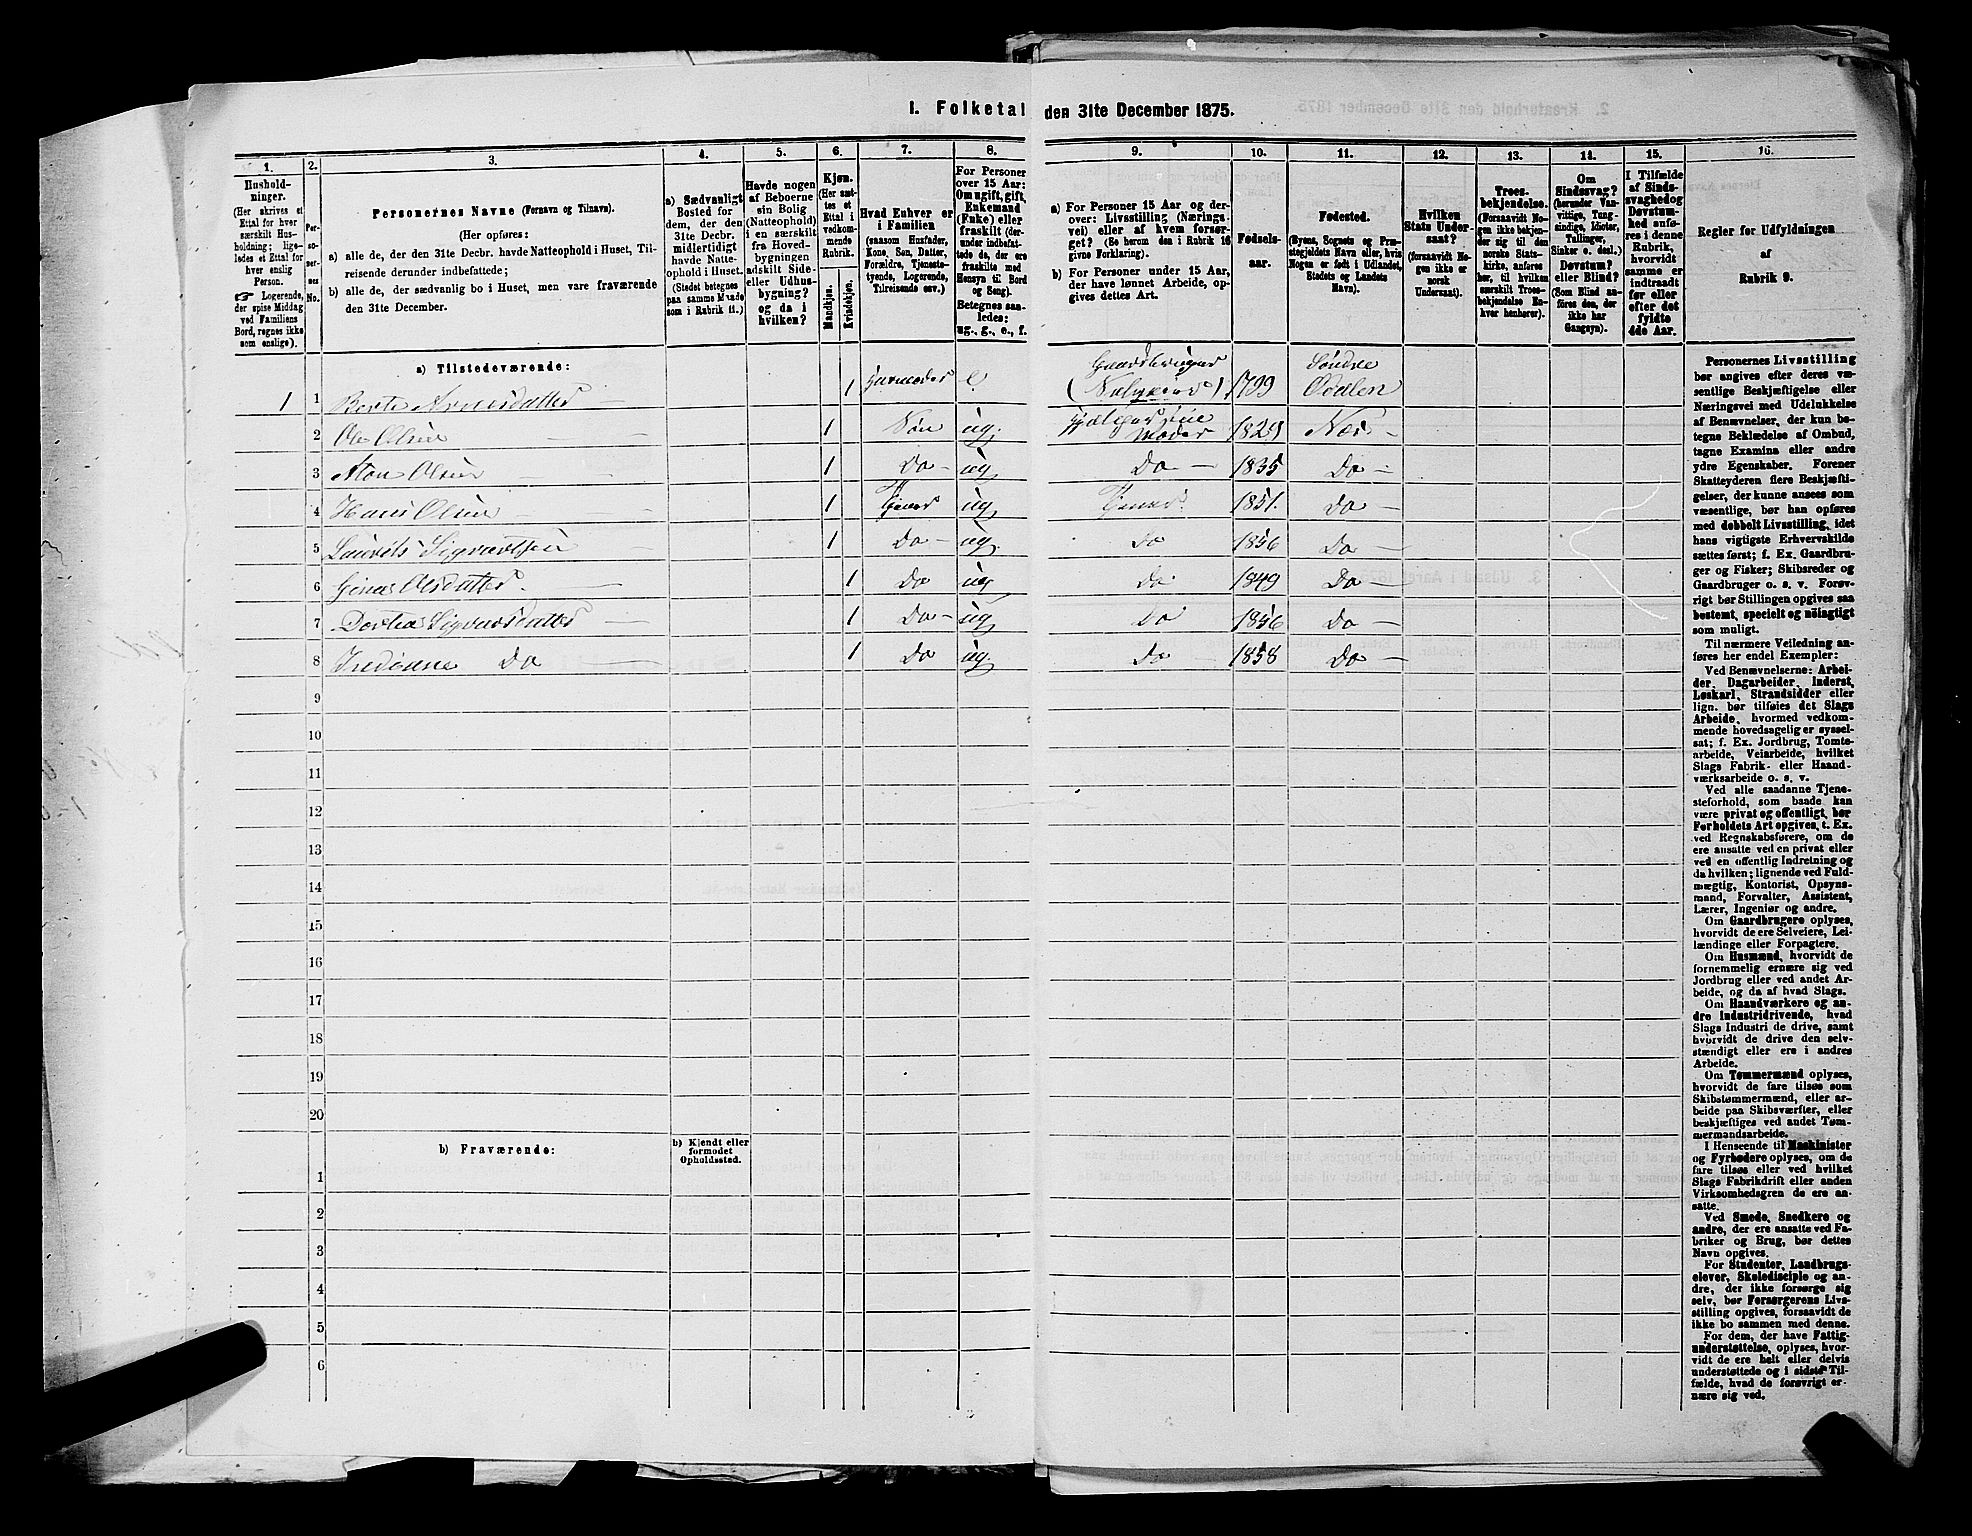 I. Folketal den 31te December 1875.
1. 2. 3. 4. 5. 6. 7. 8. 9. 10. 11. 12. 13. 14. 15. 16.
Hushold-
ninger.
(Her skrives et
Ettal for hver
særskilt Hus-
holdning; lige-
ledes et Ettal for
hver enslig
Person.
☞ Logerende,
der spise Middag
ved Familiens
Bord, regnes ikke
som enslige).
Per-
so-
ner-
nes
No.
Personernes Navne (Fornavn og Tilnavn).
(Her opføres:
a) alle de, der den 31te Decbr. havde Natteophold i Huset, Til-
reisende derunder indbefattede;
b) alle de, der sædvanlig bo i Huset, men vare fraværende
den 31te December.
a) Sædvanligt
Bosted for
dem, der den
31te Decbr.
midlertidigt
havde Natte-
ophold i Huset.
(Stedet betegnes
paa samme Maade
som i Rubrik 11.)
Havde nogen
af Beboerne
sin Bolig
(Natteophold)
i en særskilt
fra Hoved-
bygningen
adskilt Side-
eller Udhus-
bygning?
og da i
hvilken?
Kjøn.
(Her sæt-
tes et
Ettal i
vedkom-
mende
Rubrik.
Mandkjøn.
Kvindekjøn.
Hvad Enhver er
i Familien
(saasom Husfader,
Kone, Søn, Datter,
Forældre, Tjeneste-
tyende, Logerende,
Tilreisende osv.)
For Personer
over 15 Aar:
Om ugift, gift,
Enkemand
(Enke) eller
fraskilt (der-
under indbefat-
tede de, der ere
fraskilte med
Hensyn til Bord
og Seng).
Betegnes saa-
ledes:
ug., g., e., f.
a) For Personer 15 Aar og der-
over: Livsstilling (Nærings-
vei) eller af hvem forsør-
get? (Se herom den i Rubrik 16
givne Forklaring).
b) For Personer under 15 Aar,
der have lønnet Arbeide, op-
gives dettes Art.
Fødsels-
aar.
Fødested.
(Byens, Sognets og Præ-
stegjeldets Navn eller, hvis
Nogen er født i Udlandet,
Stedets og Landets
Navn).
Hvilken
Stats Under-
saat?
(forsaavidt No-
gen ikke er
norsk
Undersaat).
Troes-
bekjendelse.
(Forsaavidt No-
gen ikke bekjen-
der sig til den
norske Stats-
kirke, anføres
her, til hvilken
særskilt Troes-
bekjendelse En-
hver henhører).
Om
Sindssvag?
(herunder Van-
vittige, Tung-
sindige, Idioter,
Tullinger,
Sinker o. desl.)
Døvstum?
eller Blind?
(Som Blind an-
føres den, der
ikke har
Gangsyn).
I Tilfælde
af Sinds-
svaghed og
Døvstum-
hed anfø-
res i denne
Rubrik,
hvorvidt
samme er
indtraadt
før eller
efter det
fyldte
4de Aar.
Regler for Udfyldningen
af
Rubrik 9.
a) Tilstedeværende:
1 1 Berte Arnesdatter 1 Husmoder e Gaardbruger (Selveier) 1799 Søndre Odalen
2 Ole Olsen 1 Søn ug. Hjælper sine Moder 1829 Nes
3 Aton Olsen 1 Do ug Do 1835 Do
4 Hans Olsen 1 Tjener ug Tjener 1851. Do
5 Laurits Sigvartsen 1 Do ug. Do 1856 Do
6 Gina Olsdatter 1 Do ug Do 1849 Do
7 Dorthea Sigvarsdatter 1 Do ug Do 1856 Do
8 Do 1 Do ug. Do 1858 Do
9
10
11
12
13
14
15
16
17
18
19
20
b) Fraværende:
b) Kjendt eller
formodet
Opholdssted.
1
2
3
4
5
6
Personernes Livsstilling
bør angives efter deres væ-
sentlige Beskjæftigelse eller
Næringsvei med Udelukkelse
af Benævnelser, der kun be-
tegne Beklædelse af Ombud,
tagne Examina eller andre
ydre Egenskaber. Forener
Skatteyderen flere Beskjæfti-
gelser, der kunne ansees som
væsentlige, bør han opføres
med dobbelt Livsstilling, idet
hans vigtigste Erhvervskilde
sættes først; f. Ex. Gaardbru-
ger og Fisker; Skibsreder og
Gaardbruger o. s. v. Forøv-
rigt bør Stillingen opgives saa
bestemt, specielt og nøiagtigt
som muligt.
Til nærmere Veiledning an-
føres her endel Exempler:
Ved Benævnelserne: Arbei-
der, Dagarbeider, Inderst,
Løskarl, Strandsidder eller
lign. bør tilføies det Slags
Arbeide, hvormed vedkom-
mende hovedsagelig er syssel-
sat; f. Ex. Jordbrug, Tomte-
arbeide, Veiarbeide, hvilket
Slags Fabrik- eller Haand-
værksarbeide o. s. v.
Ved alle saadanne Tjene-
steforhold, som baade kan
være privat og offentligt, bør
Forholdets Art opgives, t. Ex.
ved Regnskabsførere, om de
ere ansatte ved en privat eller
ved en offentlig Indretning og
da hvilken; lignende ved Fuld-
mægtig, Kontorist, Opsyns-
mand, Forvalter, Assistent,
Lærer, Ingeniør og andre.
Om Gaardbrugere oplyses,
hvorvidt de ere Selveiere, Lei-
lændinge eller Forpagtere.
Om Husmænd, hvorvidt de
fornemmelig ernære sig ved
Jordbrug eller ved andet Ar-
beide, og da af hvad Slags.
Om Haandværkere og an-
dre Industridrivende, hvad
Slags Industri de drive, samt
hvorvidt de drive den selv-
stændigt eller ere i andres
Arbeide.
Om Tømmermænd oplyses,
hvorvidt de fare tilsøs som
Skibstømmermænd, eller ar-
beide paa Skibsværfter, eller
beskjæftiges ved andet Tøm-
mermandsarbeide.
I Henseende til Maskinister
og Fyrbødere oplyses, om de
fare tilsøs eller ved hvilket
Slags Fabrikdrift eller anden
Virksomhedsgren de ere an-
satte.
Ved Smede, Snedkere og
andre, der ere ansatte ved Fa-
briker og Brug, bør dettes
Navn opgives.
For Studenter, Landbrugs-
elever, Skoledisciple og an-
dre, der ikke forsørge sig
selv, bør Forsørgerens Livs-
stilling opgives, forsaavidt de
ikke bo sammen med denne.
For dem, der have Fattig-
understøttelse, oplyses, hvor-
vidt de ere helt eller delvis
understøttede og i sidste Til-
fælde, hvad de forøvrigt er-
nære sig ved.